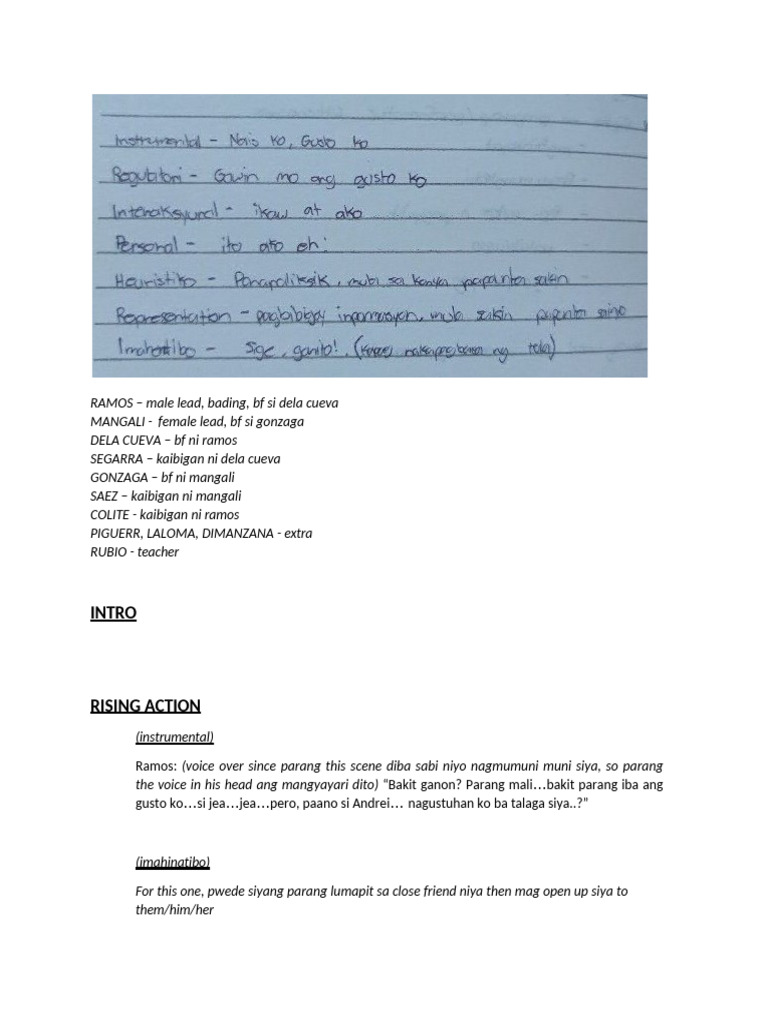 Instrumental - Nais ko, Gusto ko
Regulatori - Gawin mo ang gusto ko
Interaksyunal - ikaw at ako
Personal - ito ako eh!
Heuristiko - Pananaliksik, mula sa kanya papunta sakin
Representation - pagbibigay impormasyon, mula sakin papunta sainyo
Imahatibo - Sige, ganito!, ( nakapagbabasa ng tula)
RAMOS – male lead, bading, bf si dela cueva
MANGALI - female lead, bf si gonzaga
DELA CUEVA – bf ni ramos
SEGARRA – kaibigan ni dela cueva
GONZAGA – bf ni mangali
SAEZ – kaibigan ni mangali
COLITE - kaibigan ni ramos
PIGUERR, LALOMA, DIMANZANA - extra
RUBIO - teacher
INTRO
RISING ACTION
(instrumental)
Ramos: (voice over since parang this scene diba sabi niyo nagmumuni muni siya, so parang
the voice in his head ang mangyayari dito) “Bakit ganon? Parang mali…bakit parang iba ang
gusto ko…si jea…jea…pero, paano si Andrei… nagustuhan ko ba talaga siya..?”
(imahinatibo)
For this one, pwede siyang parang lumapit sa close friend niya then mag open up siya to
them/him/her